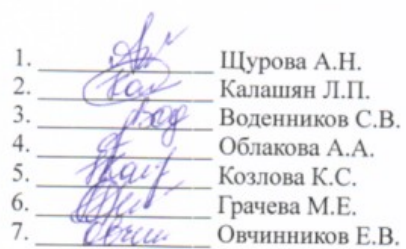 1. Щурова А.Н.
2. Калашян Л.П.
3. Воденников С.В.
4. Облакова А.А.
5. Козлова К.С.
6. Грачева М.Е.
7. Овчинников Е.В.